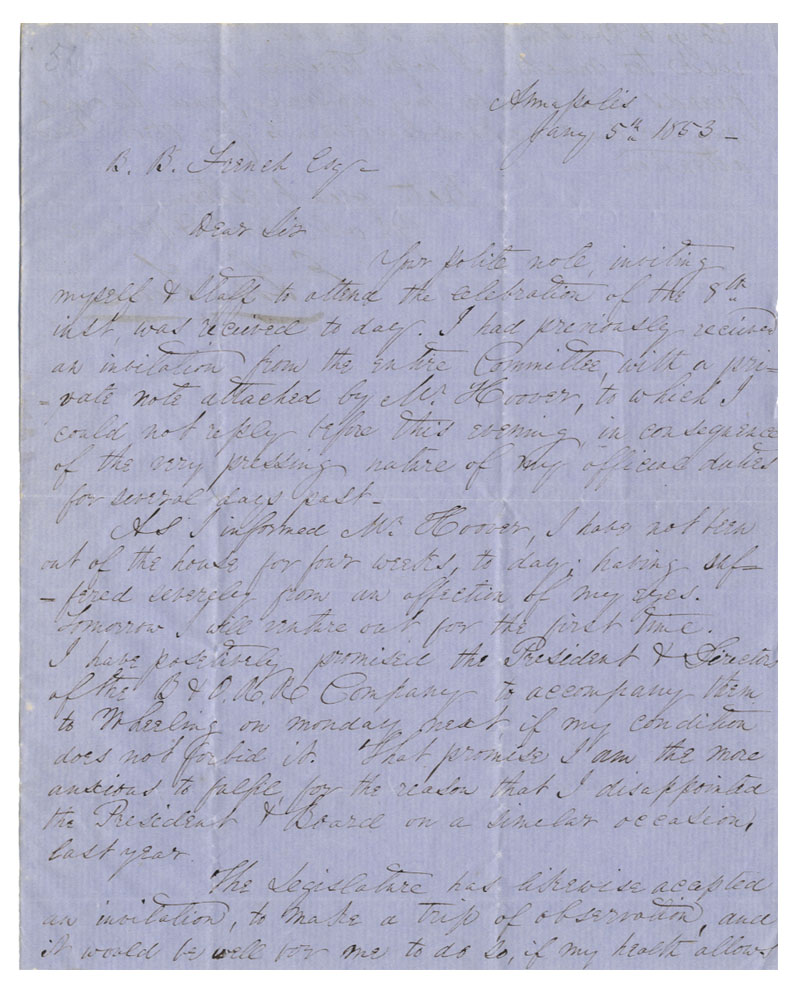 Annapolis
Jany 5th 1853 -
B. B. French Esqr
Dear Sir
Your polite note, inviting
myself & staff to attend the celebration of the 8th
inst, was received to day. I had previously received
an invitation from the entire Committee, with a pri=
= vate note attached by Mr. Hoover, to which I
could not reply before this evening, in consequence
of the very pressing nature of my official duties
for several days past -
As I informed Mr. Hoover, I have not been
out of the house for four weeks, to day; having suf=
= fered severely from an affection of my eyes.
Tomorrow I will venture out for the first time.
I have positively promised the President & Directors
of the B & O. R. R Company to accompany them
to Wheeling on monday next if my condition
does not forbid it. That promise I am the more
anxious to fulfil, for the reason that I disappointed
the President & Board on a similar occasion,
last year.
The Legislature has likewise acepted
an invitation, to make a trip of observation, and
it would be well for me to do so, if my health allows